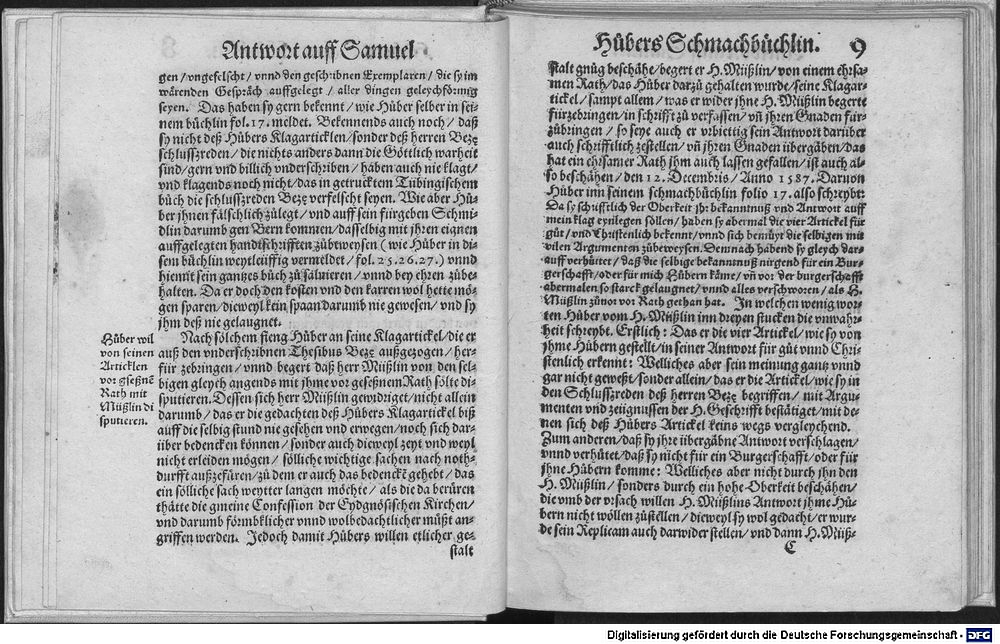 Antwort auff Samuel
gen / vngefelscht / vnnd den geschribnen Exemplaren / die sy im
wärenden Gespräch auffgelegt / aller dingen geleychförmig
seyen. Das haben sy gern bekennt / wie Hüber selber in sei-
nem büchlin fol. 17. meldet. Bekennends auch noch / daß
sy nicht deß Hübers Klagarticklen / sonder deß herren Beze
schlusszreden / die nichts anders dann die Göttlich warheit
sind / gern vnd billich vnderschriben / haben auch nie klagt /
vnd klagends noch nicht / das in getrucktem Tübingischem
büch die schlusszreden Beze verfelscht seyen. Wie aber Hü-
ber jhnen fälschlich zülegt / vnd auff sein fürgeben Schmi-
dlin darumb gen Bern kommen / dasselbig mit jhren eignen
auffgelegten handtschrifften zübweysen (wie Hüber in di-
sem büchlin weytleüffig vermeldet / fol. 25. 26. 27.) vnnd
hiemit sein gantzes büch zü salvieren / vnnd bey ehren zübe-
halten. Da er doch den kosten vnd den karren wol hette mö-
gen sparen / dieweyl kein spaan darumb nie gewesen / vnd sy
jhm deß nie gelaugnet.
Hüber wil
von seinen
Articklen
vor gseßnē
Rath mit
Müßlin di
sputieren.
Nach sölchem fieng Hüber an seine Klagartickel / die er
auß den vnderschribnen Thesibus Beze außgezogen / her-
für zebringen / vnnd begert daß herr Müßlin von den sel-
bigen gleych angends mit jhme vor geseßnem Rath sölte di-
sputieren. Dessen sich herr Müßlin gewidriget / nicht allein
darumb / das er die gedachten deß Hübers Klagartickel biß
auff die selbig stund nie gesehen vnd erwegen / noch sich dar-
über bedencken können / sonder auch dieweyl zeyt vnd weyl
nicht erleiden mögen / sölliche wichtige sachen nach noth-
durfft außzefüren / zü dem er auch das bedencke̅ gehebt / das
ein sölliche sach weytter langen möchte / als die da berüren
thätte die gmeine Confession der Eydgnösischen Kirchen /
vnd darumb förmbklicher vnnd wolbedachtlicher müßt an-
griffen werden. Jedoch damit Hübers willen etlicher ge-
stalt
Hübers Schmachbüchlin. 9
stalt gnüg beschähe / begert er H. Müßlin / von einem ehrsa-
men Rath / das Hüber darzü gehalten wurde / seine Klagar-
tickel / sampt allem / was er wider jhne H. Müßlin begerte
fürzebringen / in schrifft zü verfassen / vn̅ jhren Gnaden für-
zübringen / so seye auch er vrbiettig sein Antwort darüber
auch schrifftlich zestellen / vn̅ jhren Gnaden übergäben / das
hat ein ehrsamer Rath jhm auch lassen gefallen / ist auch al-
so beschähen / den 12. Decembris / Anno 1587. Daruon
Hüber inn seinem schmachbüchlin folio 17. also schreybt:
Da sy schrifftlich der Oberkeit jhr bekanntnuß vnd Antwort auff
mein klag eynlegen söllen / haben sy abermal die vier Artickel für
güt / vnd Christenlich bekennt / vnnd sich bemüyt die selbigen mit
vilen Argumenten zübeweysen. Demnach habend sy gleych dar-
auff verhüttet / daß die selbige bekanntnuß nirgend für ein Bur-
gerschafft / oder für mich Hübern käme / vn̅ vor der burgerschafft
abermalen so starck gelaugnet / vnnd alles verschworen / als H.
Müßlin zünor vor Rath gethan hat. In welchen wenig wor-
ten Hüber vom H. Müßlin inn dreyen stucken die vnwahr-
heit schreybt. Erstlich: Das er die vier Artickel / wie sy von
jhme Hübern gestellt / in seiner Antwort für güt vnnd Chri-
stenlich erkennt: Welliches aber sein meinung gantz vnnd
gar nicht geweßt / sonder allein / das er die Artickel / wie sy in
den Schlusszreden deß herren Beze begriffen / mit Argu-
menten vnd zeügnussen der H. Geschrifft bestätiget / mit de-
nen sich deß Hübers Artickel keins wegs vergleychend.
Zum anderen / daß sy jhre übergäbne Antwort verschlagen /
vnnd verhütet / daß sy nicht für ein Burgerschafft / oder für
jhne Hübern komme: Welliches aber nicht durch jhn den
H. Müßlin / sonders durch ein hohe Oberkeit beschähen /
die vmb der vrsach willen H. Müßlins Antwort jhme Hü-
bern nicht wöllen züstellen / dieweyl sy wol gedacht / er wur-
de sein Replicam auch darwider stellen / vnd dann H. Müß-
C
Digitalisierung gefördert durch die Deutsche Forschungsgemeinschaft - DFG